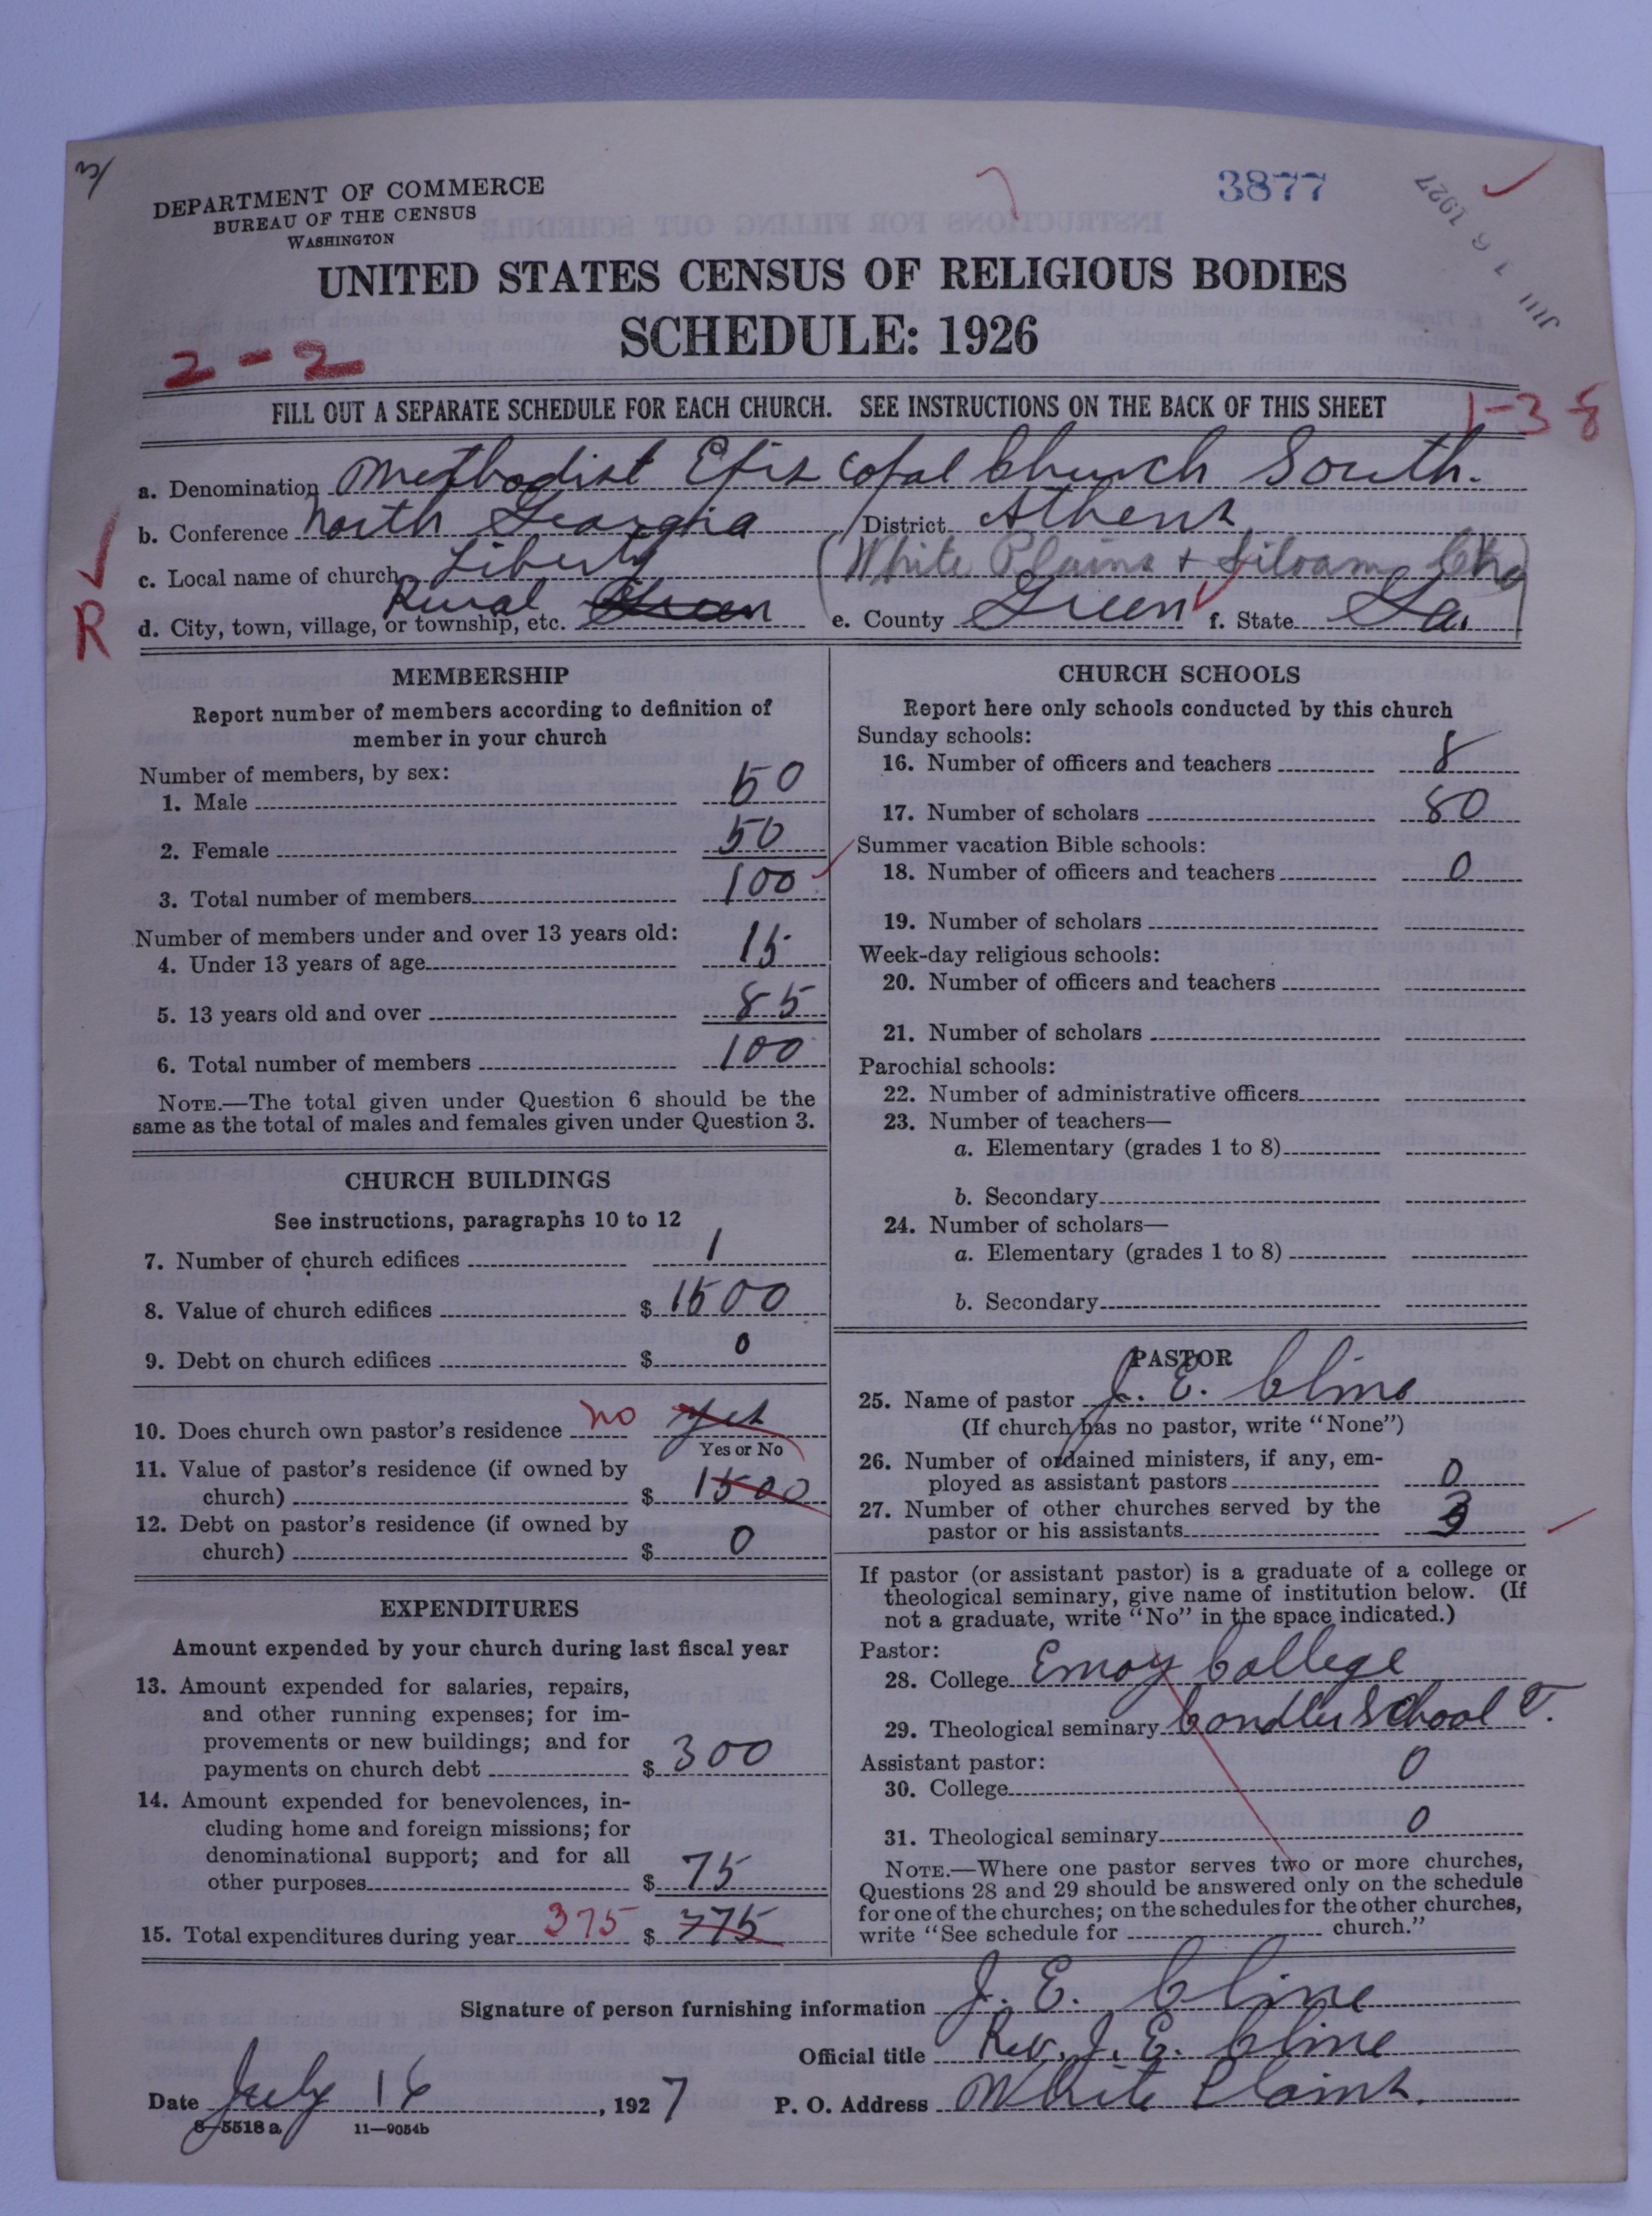 3/
DEPARTMENT OF COMMERCE
BUREAU OF THE CENSUS
WASHINGTON
3877
JUL 16 1927
UNITED STATES CENSUS OF RELIGIOUS BODIES
SCHEDULE: 1926
2-2
FILL OUT A SEPARATE SCHEDULE FOR EACH CHURCH. SEE INSTRUCTIONS ON THE BACK OF THIS SHEET
1-38
a. Denomination Methodist Episcopal Church South.
b. Conference North Georgia District Athens
c. Local name of church Liberty (White Plains + Siloam Chg)
R
d. City, town, village, or township, etc. Rural Green e. County Green f. State Ga.
MEMBERSHIP
Report number of members according to definition of
member in your church
Number of members, by sex:
1. Male 50
2. Female 50
3. Total number of members 100
Number of members under and over 13 years old:
4. Under 13 years of age 15
5. 13 years old and over 85
6. Total number of members 100
NOTE.—The total given under Question 6 should be the
same as the total of males and females given under Question 3.
CHURCH BUILDINGS
See instructions, paragraphs 10 to 12
7. Number of church edifices 1
8. Value of church edifices $ 1500
9. Debt on church edifices $ 0
10. Does church own pastor's residence no yes
Yes or No
11. Value of pastor's residence (if owned by
church) $ 1500
12. Debt on pastor's residence (if owned by
church) $ 0
EXPENDITURES
Amount expended by your church during last fiscal year
13. Amount expended for salaries, repairs,
and other running expenses; for im-
provements or new buildings; and for
payments on church debt $ 300
14. Amount expended for benevolences, in-
cluding home and foreign missions; for
denominational support; and for all
other purposes $ 75
15. Total expenditures during year 375 $ 775
CHURCH SCHOOLS
Report here only schools conducted by this church
Sunday schools:
16. Number of officers and teachers 8
17. Number of scholars 80
Summer vacation Bible schools:
18. Number of officers and teachers 0
19. Number of scholars
Week-day religious schools:
20. Number of officers and teachers
21. Number of scholars
Parochial schools:
22. Number of administrative officers
23. Number of teachers—
a. Elementary (grades 1 to 8)
b. Secondary
24. Number of scholars—
a. Elementary (grades 1 to 8)
b. Secondary
PASTOR
25. Name of pastor J. E. Cline
(If church has no pastor, write "None")
26. Number of ordained ministers, if any, em-
ployed as assistant pastors 0
27. Number of other churches served by the
pastor or his assistants 3
If pastor (or assistant pastor) is a graduate of a college or
theological seminary, give name of institution below. (If
not a graduate, write "No" in the space indicated.)
Pastor:
28. College Emory College
29. Theological seminary Candler School T.
Assistant pastor:
30. College 0
31. Theological seminary 0
NOTE.—Where one pastor serves two or more churches,
Questions 28 and 29 should be answered only on the schedule
for one of the churches; on the schedules for the other churches,
write "See schedule for church."
Signature of person furnishing information J. E. Cline
Official title Rev. J. E. Cline
Date July 16, 1927 P. O. Address White Plains.
8-5518 a 11-9054b